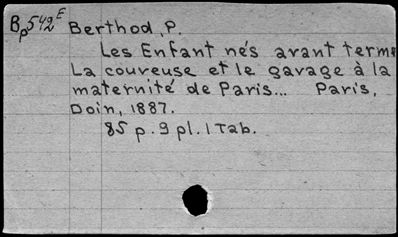 Bp542E Berthod, P.
Les Enfant nés avant terme
La couveuse et le gavage à la
maternité de Paris... Paris,
Doin, 1887.
85 p. 9 pl. 1 Tab.